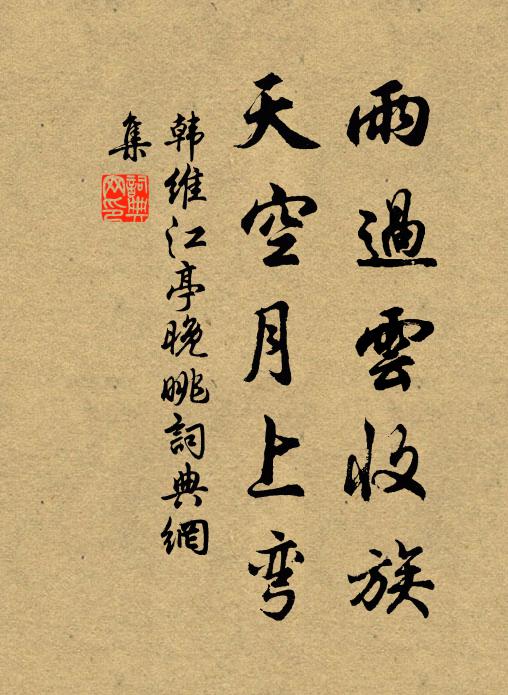 雨過雲收族
天空月上弯
韩維江亭晚眺詞典網
集
詞典网印